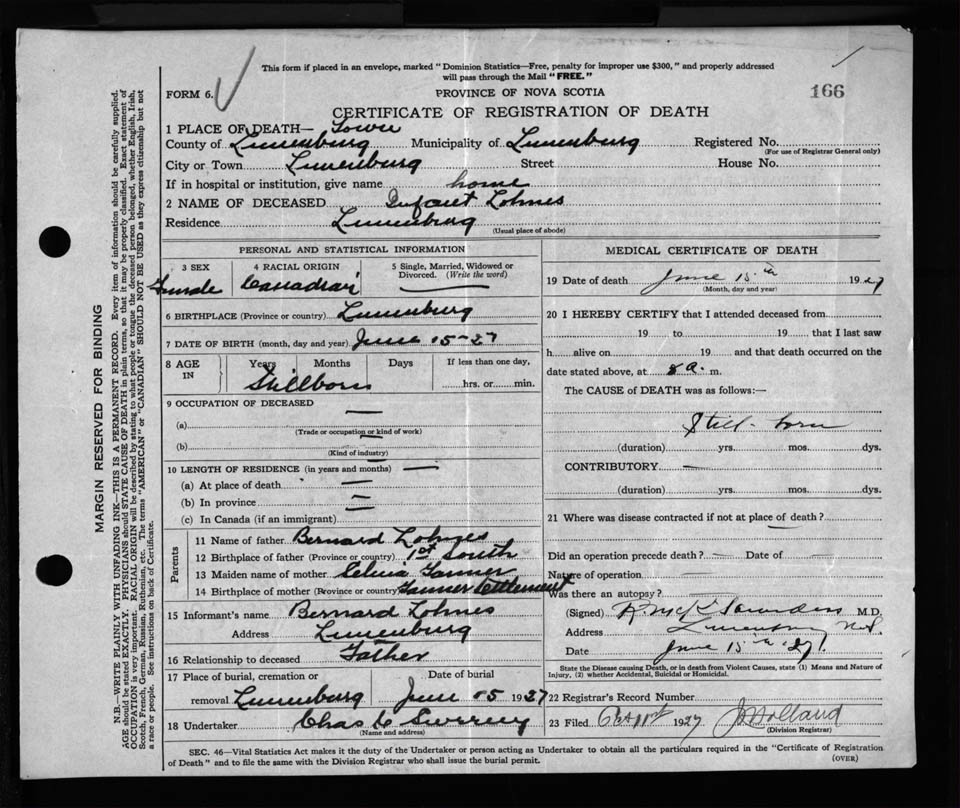 This form if placed in an envelope, marked "Dominion Statistics—Free, penalty for improper use $300," and properly addressed
will pass through the Mail "FREE."
FORM 6.
PROVINCE OF NOVA SCOTIA
166
CERTIFICATE OF REGISTRATION OF DEATH
1 PLACE OF DEATH— Town
County of Lunenburg Municipality of Lunenburg Registered No.
(For use of Registrar General only)
City or Town Lunenburg Street House No.
If in hospital or institution, give name home
2 NAME OF DECEASED Infant Lohnes
Residence Lunenburg
(Usual place of abode)
PERSONAL AND STATISTICAL INFORMATION
3 SEX 4 RACIAL ORIGIN 5 Single, Married, Widowed or
Divorced. (Write the word)
Female Canadian
6 BIRTHPLACE (Province or country) Lunenburg
7 DATE OF BIRTH (month, day and year) June 15-27
8 AGE Years Months Days If less than one day,
IN Stillborn hrs. or min.
9 OCCUPATION OF DECEASED —
(a)
(Trade or occupation or kind of work)
(b)
(Kind of industry)
10 LENGTH OF RESIDENCE (in years and months) —
(a) At place of death —
(b) In province —
(c) In Canada (if an immigrant)
Parents
11 Name of father Bernard Lohnes
12 Birthplace of father (Province or country) 1st South
13 Maiden name of mother Tanner
14 Birthplace of mother (Province or country) Tanner Settlement
15 Informant's name Bernard Lohnes
Address Lunenburg
16 Relationship to deceased Father
17 Place of burial, cremation or Date of burial
removal Lunenburg June 15 1927
18 Undertaker Chas
(Name and address)
MEDICAL CERTIFICATE OF DEATH
19 Date of death June 15th 1927
(Month, day and year)
20 I HEREBY CERTIFY that I attended deceased from
19 to 19 that I last saw
h alive on 19 and that death occurred on the
date stated above, at 8 a. m.
The CAUSE of DEATH was as follows:—
Still-born
(duration) yrs. mos. dys.
CONTRIBUTORY —
(duration) yrs. mos. dys.
21 Where was disease contracted if not at place of death?
Did an operation precede death? — Date of
Nature of operation —
Was there an autopsy?
(Signed) M.D.
Address Lunenburg N.S.
Date June 15th 27
State the Disease causing Death, or in death from Violent Causes, state (1) Means and Nature of
Injury, (2) whether Accidental, Suicidal or Homicidal.
22 Registrar's Record Number
23 Filed 1927 Holland
(Division Registrar)
SEC. 46—Vital Statistics Act makes it the duty of the Undertaker or person acting as Undertaker to obtain all the particulars required in the "Certificate of Registration
of Death" and to file the same with the Division Registrar who shall issue the burial permit.
(OVER)
MARGIN RESERVED FOR BINDING
N.B.—WRITE PLAINLY WITH UNFADING INK—THIS IS A PERMANENT RECORD. Every item of information should be carefully supplied.
AGE should be stated EXACTLY. PHYSICIANS should STATE CAUSE OF DEATH in plain terms, so that it may be properly classified. Exact statement of
OCCUPATION is very important. RACIAL ORIGIN will be described by stating to what people or tongue the deceased person belonged, whether English, Irish,
Scotch, French, German, Russian, Ruthenian, etc. The terms "AMERICAN" or "CANADIAN" SHOULD NOT BE USED as they express citizenship but not
a race or people. See instructions on back of Certificate.